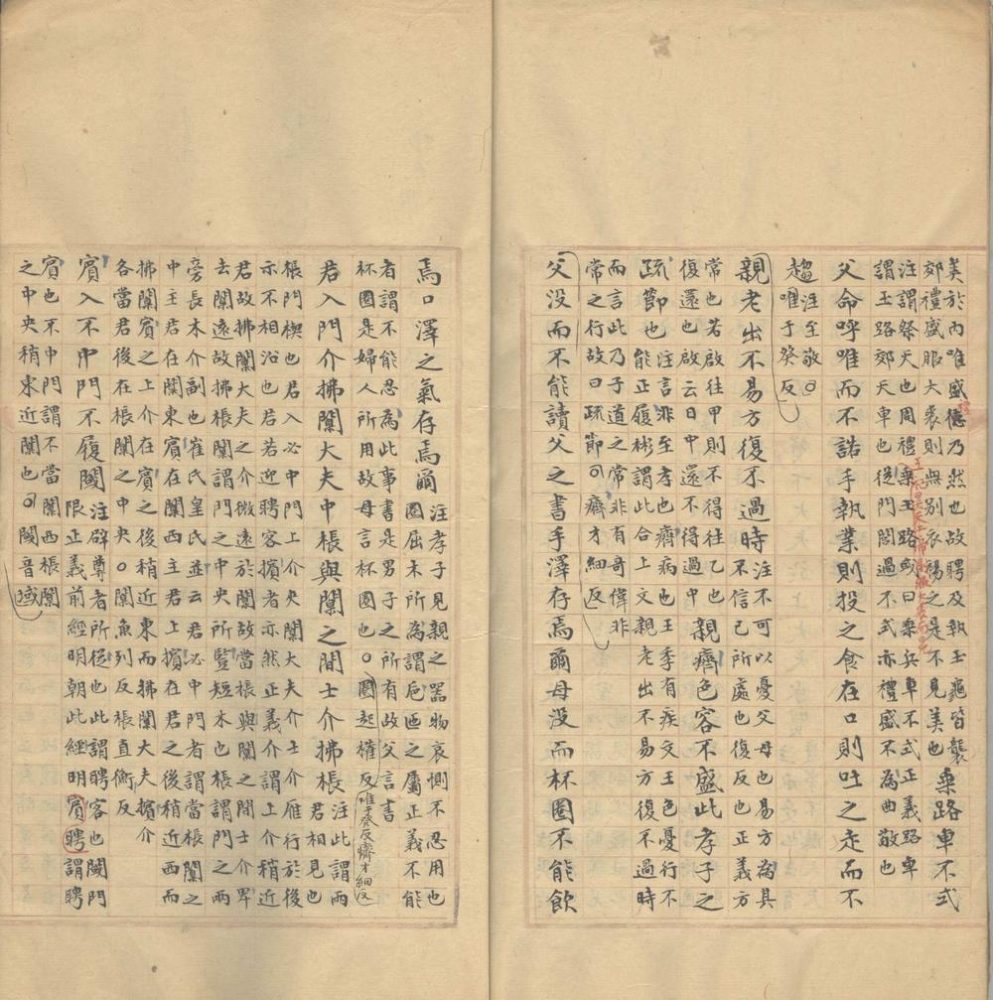 美於內唯盛德乃然也故聘及執玉龜皆襲
郊禮盛服大裘則無別衣裼之是不見美也
乗路車不式
注謂祭天也周禮乗玉路或曰乗兵車不式正義路車
謂玉路郊天車也從門閭過不式亦禮盛不為曲敬也
父命呼唯而不諾手執業則投之食在口則吐之走而不
趨
注至敬○
唯于癸反
親老出不易方復不過時
注不可以憂父母也易方為其
不信己所處也復反也正義方
常也若啟往甲則不得往乙也
復還也啟云日中還不得過中
親癠色容不盛此孝子之
疏節也
注言非至孝也癠病也王季有疾文王色憂行不
能正履彬謂此合上文親老出不易方復不過時
而言此乃子道之常非有奇偉非
常之行故曰疏節○癠才細反
父没而不能讀父之書手澤存焉爾母没而杯圈不能飲
焉口澤之氣存焉爾
注孝子見親之器物哀惻不忍用也
圈屈木所為謂卮匜之屬正義不能
者謂不能忍為此事書是男子之所有故父言書
杯圈是婦人所用故母言杯圈也○圈起權反
唯于癸反癠才細反
君入門介拂闑大夫中棖與闑之間士介拂棖
注此謂兩
君相見也
棖門楔也君入必中門上介夾闑大夫介士介雁行於後
示不相沿也君若迎聘客擯者亦然正義介謂上介稍近
君故拂闑大夫之介微遠於闑故當棖與闑之間士介卑
去闑遠故拂棖闑謂門之中央所豎短木也棖謂門之兩
旁長木介副也崔氏皇氏並云君必中門者謂當棖闑之
中主君在闑東賓在闑西主君上擯在君之後稍近西而
拂闑賓之上介在賓之後稍近東而拂闑大夫擯介
各當君後在棖闑之中央○闑魚列反棖直衡反
賓入不中門不履閾
注辟尊者所從也此謂聘客也閾門
限正義前經明朝此經明賓聘謂聘
賓也不中門謂不當闑西棖闑
之中央稍東近闑也○閾音域